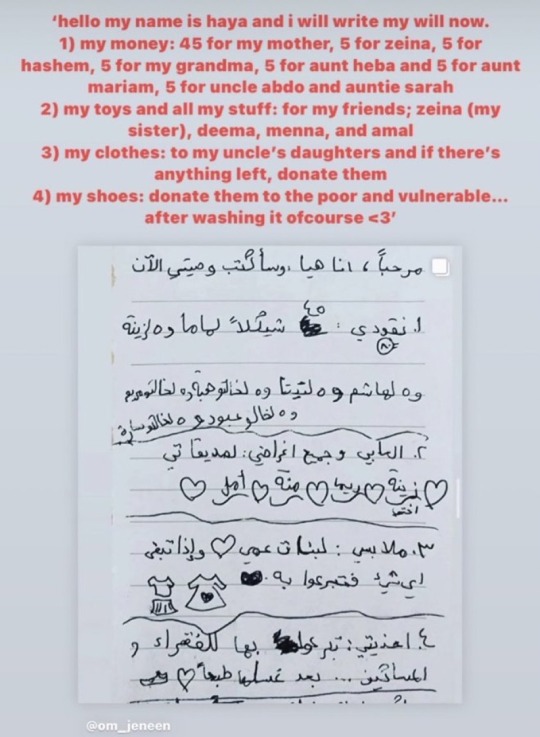 ‘hello my name is haya and i will write my will now.
1) my money: 45 for my mother, 5 for zeina, 5 for
hashem, 5 for my grandma, 5 for aunt heba and 5 for aunt
mariam, 5 for uncle abdo and auntie sarah
2) my toys and all my stuff: for my friends; zeina (my
sister), deema, menna, and amal
3) my clothes: to my uncle’s daughters and if there’s
anything left, donate them
4) my shoes: donate them to the poor and vulnerable...
after washing it ofcourse <3’
مرحباً ، انا هيا ، وسأكتب وصيتي الآن
١. نقودي : ٤٥ شيكلاً لماما و ٥ لزينة
٨٠
و ٥ لهاشم و ٥ لتيتا و ٥ لخالتو هبة و ٥ لخالتو مريم
و ٥ لخالو عبود و ٥ لخالتو سارة
٢. العابي و جميع اغراضي : لصديقاتي
زينة ♡ ريما ♡ منة ♡ أمل ♡
اختي
٣. ملابسي : لبنات عمي ♡ وإذا تبقى
اي شيء فتبرعوا به
٤. احذيتي : تبرعوا بها للفقراء و
المساكين ... بعد غسلها طبعاً ♡
@om_jeneen